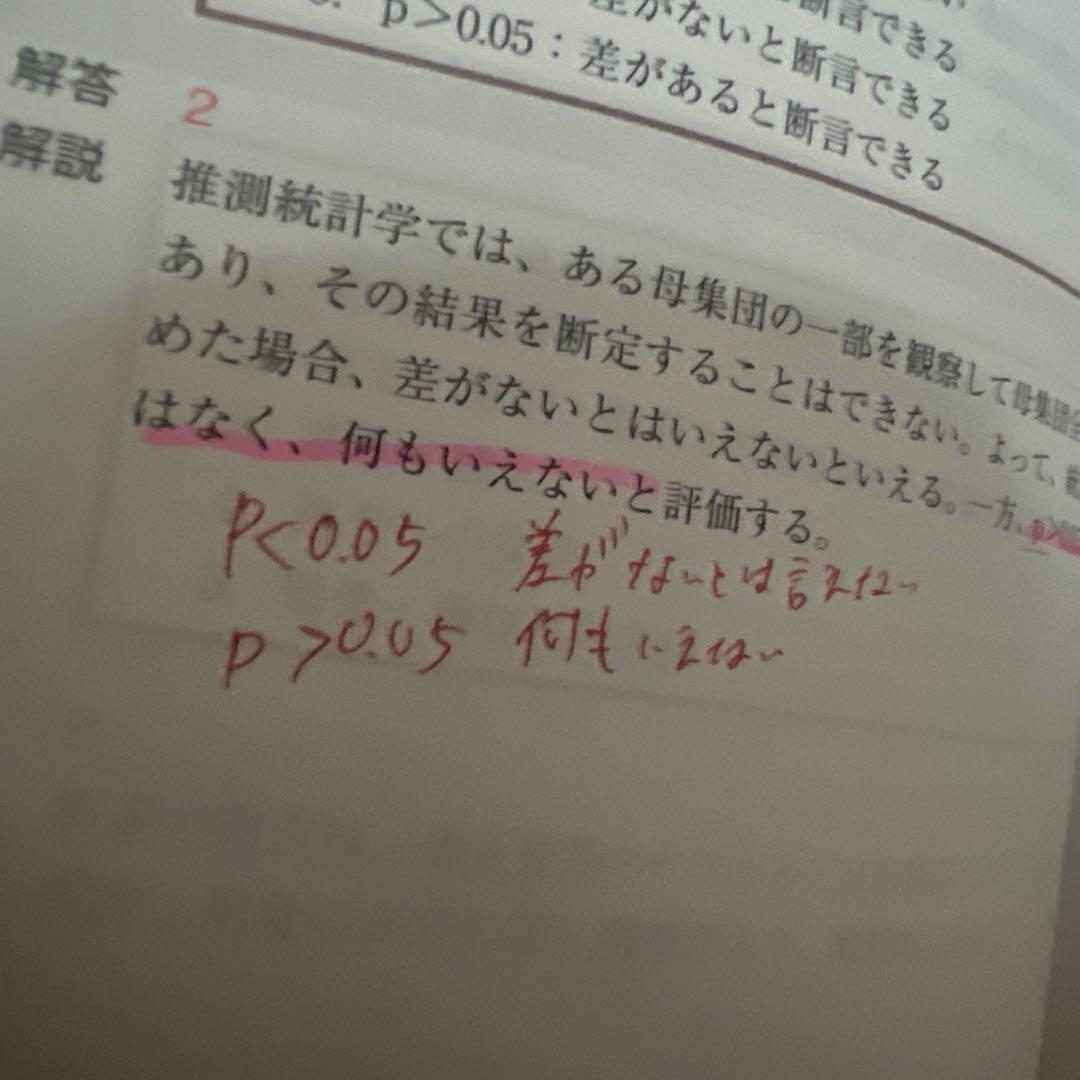 断言できる
差がないと断言できる
p＞0.05：差があると断言できる
解答 2
解説 推測統計学では、ある母集団の一部を観察して母集団全
あり、その結果を断定することはできない。よって、
めた場合、差がないとはいえないといえる。一方、p＞
はなく、何もいえないと評価する。
P<0.05 差がないとは言えない
p >0.05 何もいえない